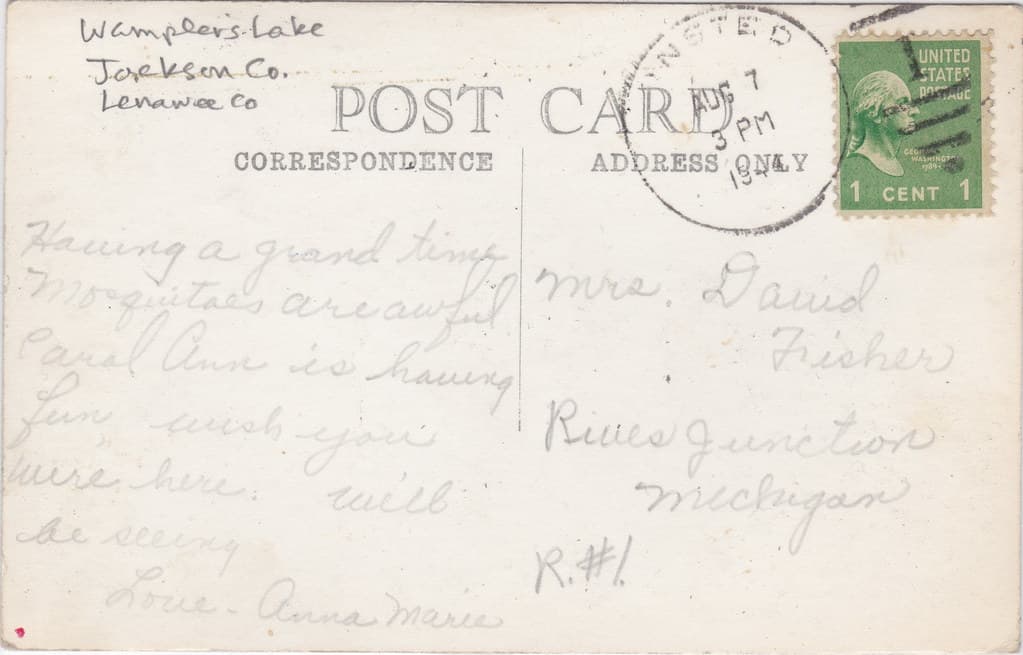 Wampler's Lake
Jackson Co.
Lenawee Co
POST CARD
CORRESPONDENCE
ADDRESS ONLY
ONSTED
AUG 7
3 PM
1944
UNITED
STATES
POSTAGE
GEORGE
WASHINGTON
1789-
1 CENT 1
Having a grand time
Mosquitoes are awful
Carol Ann is having
fun wish you
were here. will
be seeing
Love - Anna Marie
Mrs. David
Fisher
Rives Junction
Michigan
R. #1.